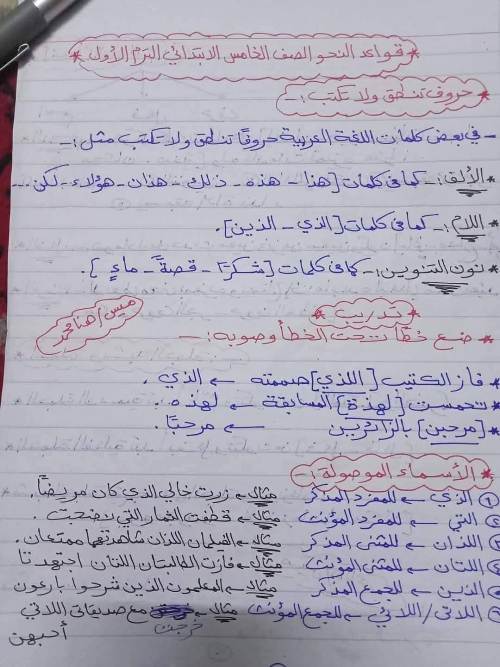 * قواعد النحو الصف الخامس الابتدائي الترم الأول *
* حروف تنطق ولا تكتب :-
- في بعض كلمات اللغة العربية حروفًا تنطق ولا تكتب مثل :-
* الألف :- كما في كلمات [هذا - هذه - ذلك - هذان - هؤلاء - لكن ...
* اللام :- كما في كلمات [الذي - الذين].
* نون التنوين :- كما في كلمات [شكرًا - قصةً - ماءٍ].
* تدريب *
ميس/هنا محمد
* ضع خطًا تحت الخطأ وصوبه :-
* فاز الكتيب [اللذي] صممته ← الذي .
* تحمست [لهاذة] المسابقة ← لهذه .
* [مرحبن] بالزائرين ← مرحبًا .
* الأسماء الموصولة :
① الذي ← للمفرد المذكر مثال ← زرت خالي الذي كان مريضًا.
② التي ← للمفرد المؤنث مثال ← قطفت الثمار التي نضجت .
③ اللذان ← للمثنى المذكر مثال ← الفيلمان اللذان شاهدتهما ممتعان .
④ اللتان ← للمثنى المؤنث مثال ← فازت الطالبتان اللتان اجتهدتا
⑤ الذين ← للجمع المذكر مثال ← المعلمون الذين شرحوا بارعون
⑥ اللاتي / اللائي ← للجمع المؤنث مثال ← خرجت مع صديقاتي اللاتي
أحبهن